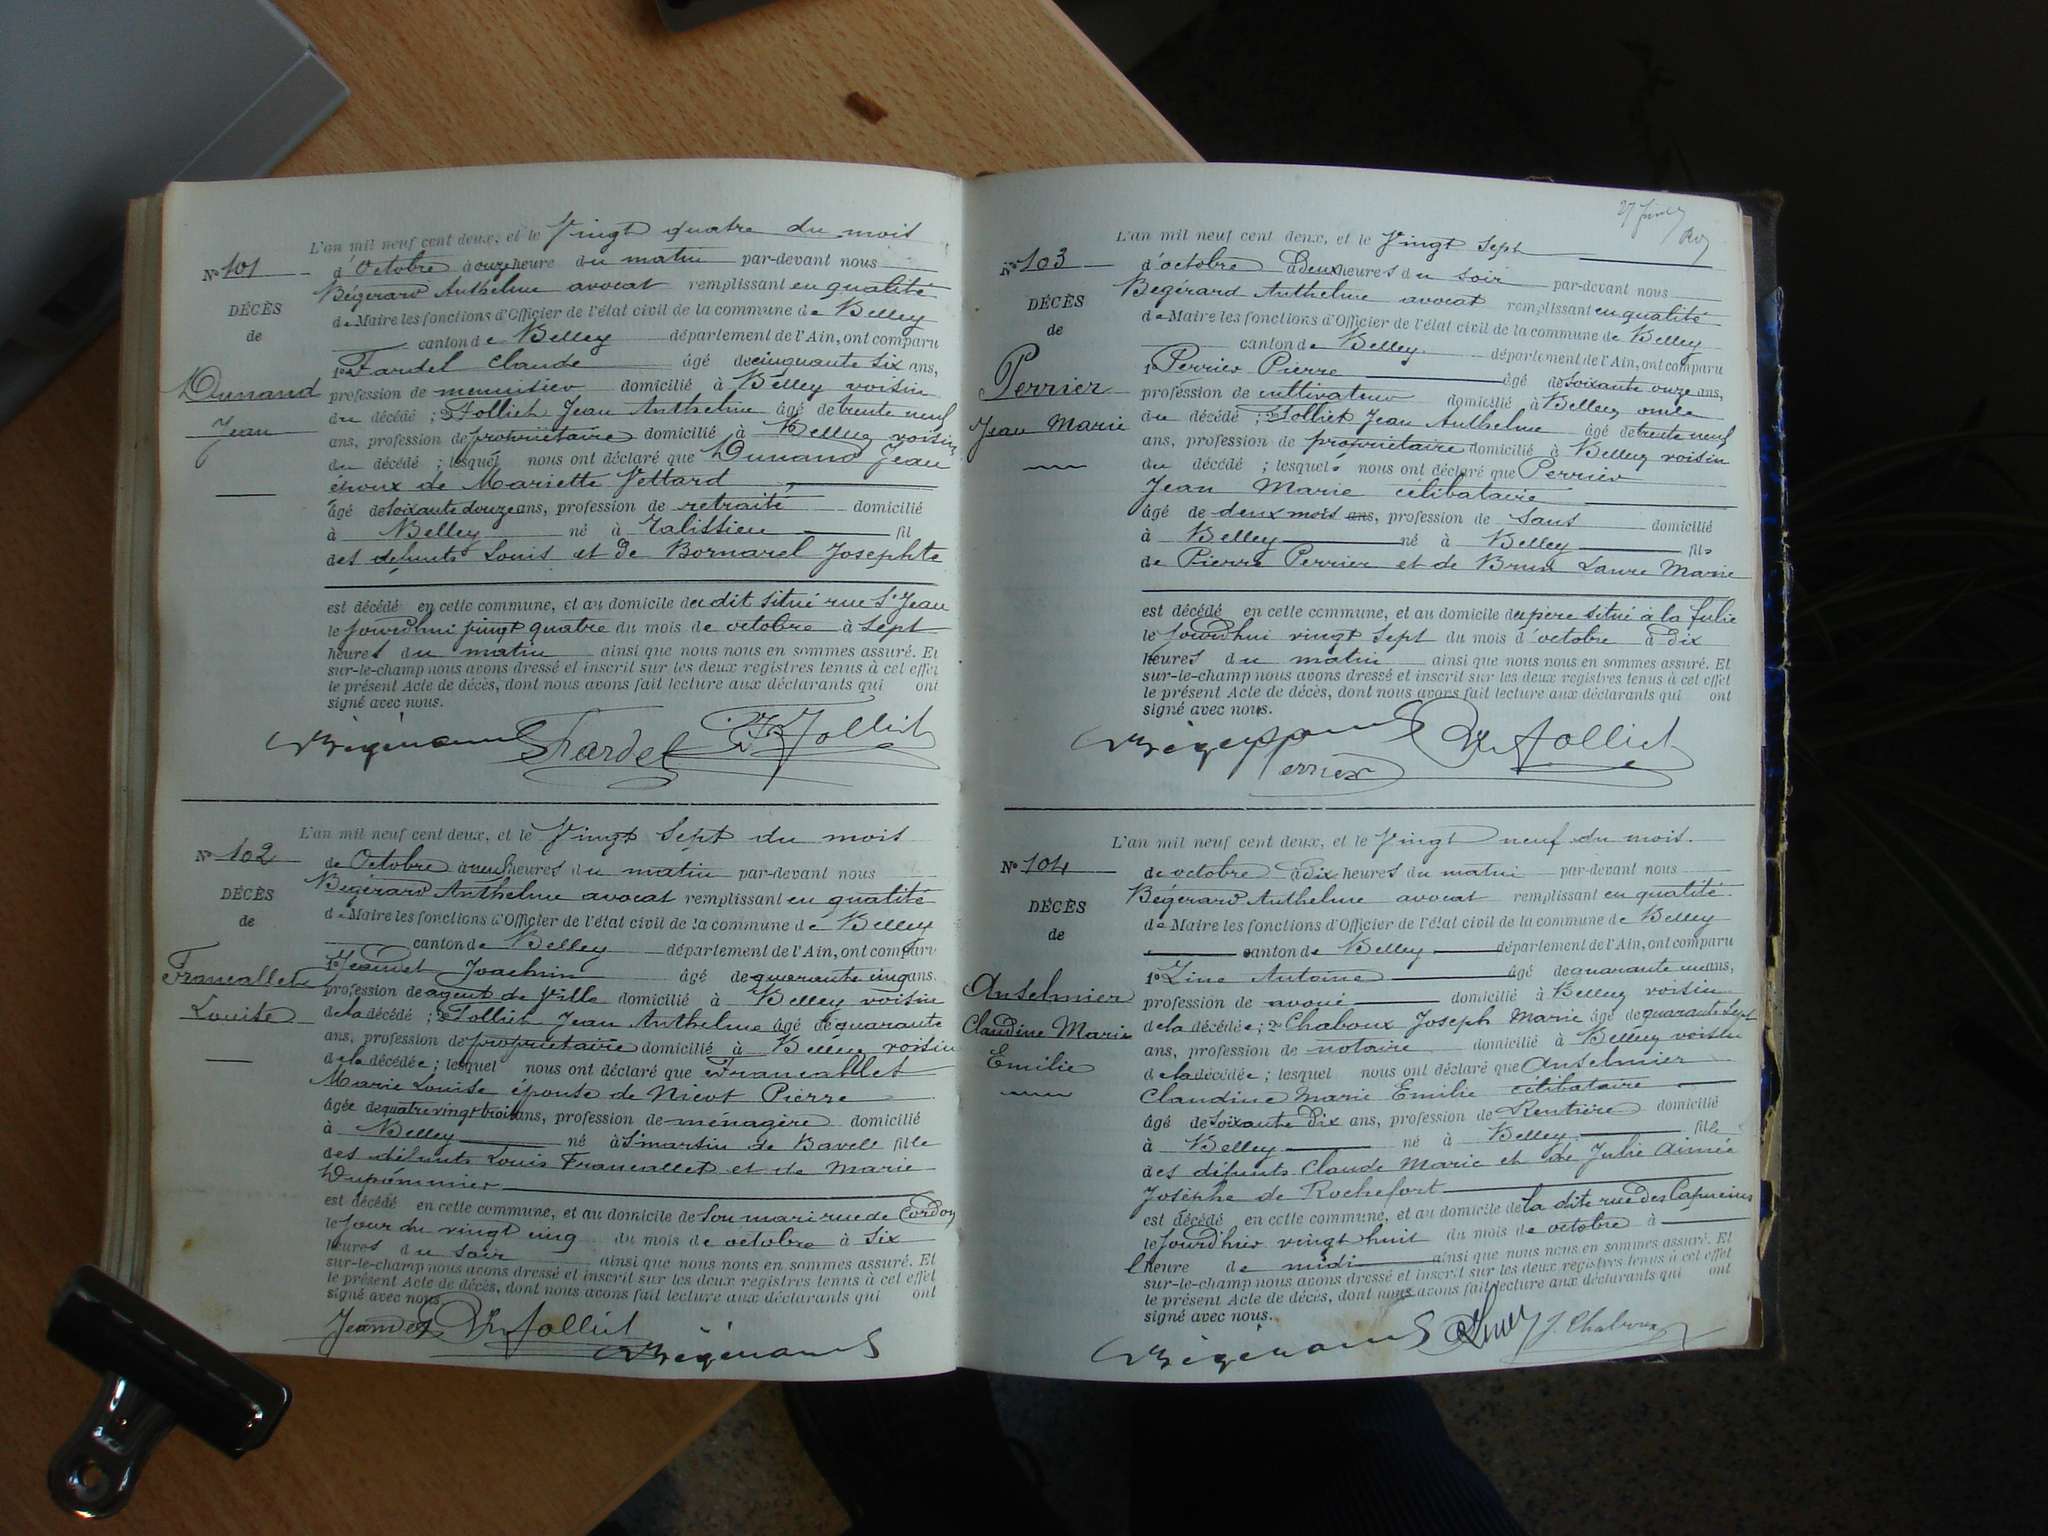 L'an mil neuf cent deux, et le Vingt quatre du mois
N° 101
d'Octobre à onze heure du matin par-devant nous
Bégérard Anthelme avocat remplissant en qualité
DÉCÈS
de Maire les fonctions d'Officier de l'état civil de la commune de Belley
de
canton de Belley département de l'Ain, ont comparu
1° Fardel Claude âgé de cinquante six ans,
Dunand
profession de menuisier domicilié à Belley voisin
du décédé ; 2° Folliet Jean Anthelme âgé de trente neuf
Jean
ans, profession de propriétaire domicilié à Belley voisin
du décédé ; lesquel nous ont déclaré que Dunand Jean
époux de Mariette Vettard
âgé de soixante douze ans, profession de retraité domicilié
à Belley né à Talissieu fil
des défunts Louis et de Bornarel Josephte
est décédé en cette commune, et au domicile du dit situé rue St Jean
le jourdhui vingt quatre du mois de octobre à sept
heures du matin ainsi que nous nous en sommes assuré. Et
sur-le-champ nous avons dressé et inscrit sur les deux registres tenus à cet effet
le présent Acte de décès, dont nous avons fait lecture aux déclarants qui ont
signé avec nous.
Bégérard Fardel Folliet
L'an mil neuf cent deux, et le Vingt sept du mois
N° 102
de Octobre à neuf heures du matin par-devant nous
Bégérard Anthelme avocat remplissant en qualité
DÉCÈS
de Maire les fonctions d'Officier de l'état civil de la commune de Belley
de
canton de Belley département de l'Ain, ont comparu
1° Jeandet Joachim âgé de quarante cinq ans
Francallet
profession de agent de Ville domicilié à Belley voisin
Louise
de la décédé ; 2° Folliet Jean Anthelme âgé de quarante
ans, profession de propriétaire domicilié à Belley voisin
de la décédée ; lesquel nous ont déclaré que Francallet
Marie Louise épouse de Nicot Pierre
âgée de quatre vingt trois ans, profession de ménagère domicilié
à Belley né à St martin de Bavel fille
des défunts Louis Francallet et de Marie
Dupommier
est décédé en cette commune, et au domicile de son mari rue de Cordon
le jour du vingt cinq du mois de octobre à six
heures du soir ainsi que nous nous en sommes assuré. Et
sur-le-champ nous avons dressé et inscrit sur les deux registres tenus à cet effet
le présent Acte de décès, dont nous avons fait lecture aux déclarants qui ont
signé avec nous
Jeandet Folliet Bégérard
L'an mil neuf cent deux, et le Vingt sept
N° 103
d'octobre à deux heures du soir par-devant nous
Bégérard Anthelme avocat remplissant en qualité
DÉCÈS
de Maire les fonctions d'Officier de l'état civil de la commune de Belley
de
canton de Belley département de l'Ain, ont comparu
1 Perrier Pierre âgé de soixante onze ans,
Perrier
profession de cultivateur domicilié à Belley oncle
Jean Marie
du décédé ; 2° Folliet Jean Anthelme âgé de trente neuf
ans, profession de propriétaire domicilié à Belley voisin
du décédé ; lesquels nous ont déclaré que Perrier
Jean Marie célibataire
âgé de deux mois ans, profession de sans domicilié
à Belley né à Belley fils
de Pierre Perrier et de Brun Laure Marie
est décédé en cette commune, et au domicile du père situé à la
le jourdhui vingt sept du mois d'octobre à dix
heures du matin ainsi que nous nous en sommes assuré. Et
sur-le-champ nous avons dressé et inscrit sur les deux registres tenus à cet effet
le présent Acte de décès, dont nous avons fait lecture aux déclarants qui ont
signé avec nous.
Bégérard Perrier Folliet
L'an mil neuf cent deux, et le Vingt neuf du mois
N° 104
de octobre à dix heures du matin par-devant nous
Bégérard Anthelme avocat remplissant en qualité
DÉCÈS
de Maire les fonctions d'Officier de l'état civil de la commune de Belley
de
canton de Belley département de l'Ain, ont comparu
1° Antoine âgé de quarante ans,
Anselmier
profession de avoué domicilié à Belley voisin
Claudine Marie
de la décédée ; 2° Chaboux Joseph Marie âgé de quarante sept
ans, profession de notaire domicilié à Belley voisin
Emilie
de la décédée ; lesquel nous ont déclaré que Anselmier
Claudine Marie Emilie célibataire
âgé de soixante dix ans, profession de Rentière domicilié
à Belley né à Belley fille
des défunts Claude Marie et de Julie Aimée
Josephe de Rochefort
est décédé en cette commune, et au domicile de la dite rue des Capucins
le jourd'hier vingt huit du mois de octobre à
l'heure de midi ainsi que nous nous en sommes assuré. Et
sur-le-champ nous avons dressé et inscrit sur les deux registres tenus à cet effet
le présent Acte de décès, dont nous avons fait lecture aux déclarants qui ont
signé avec nous.
Bégérard J. Chaboux